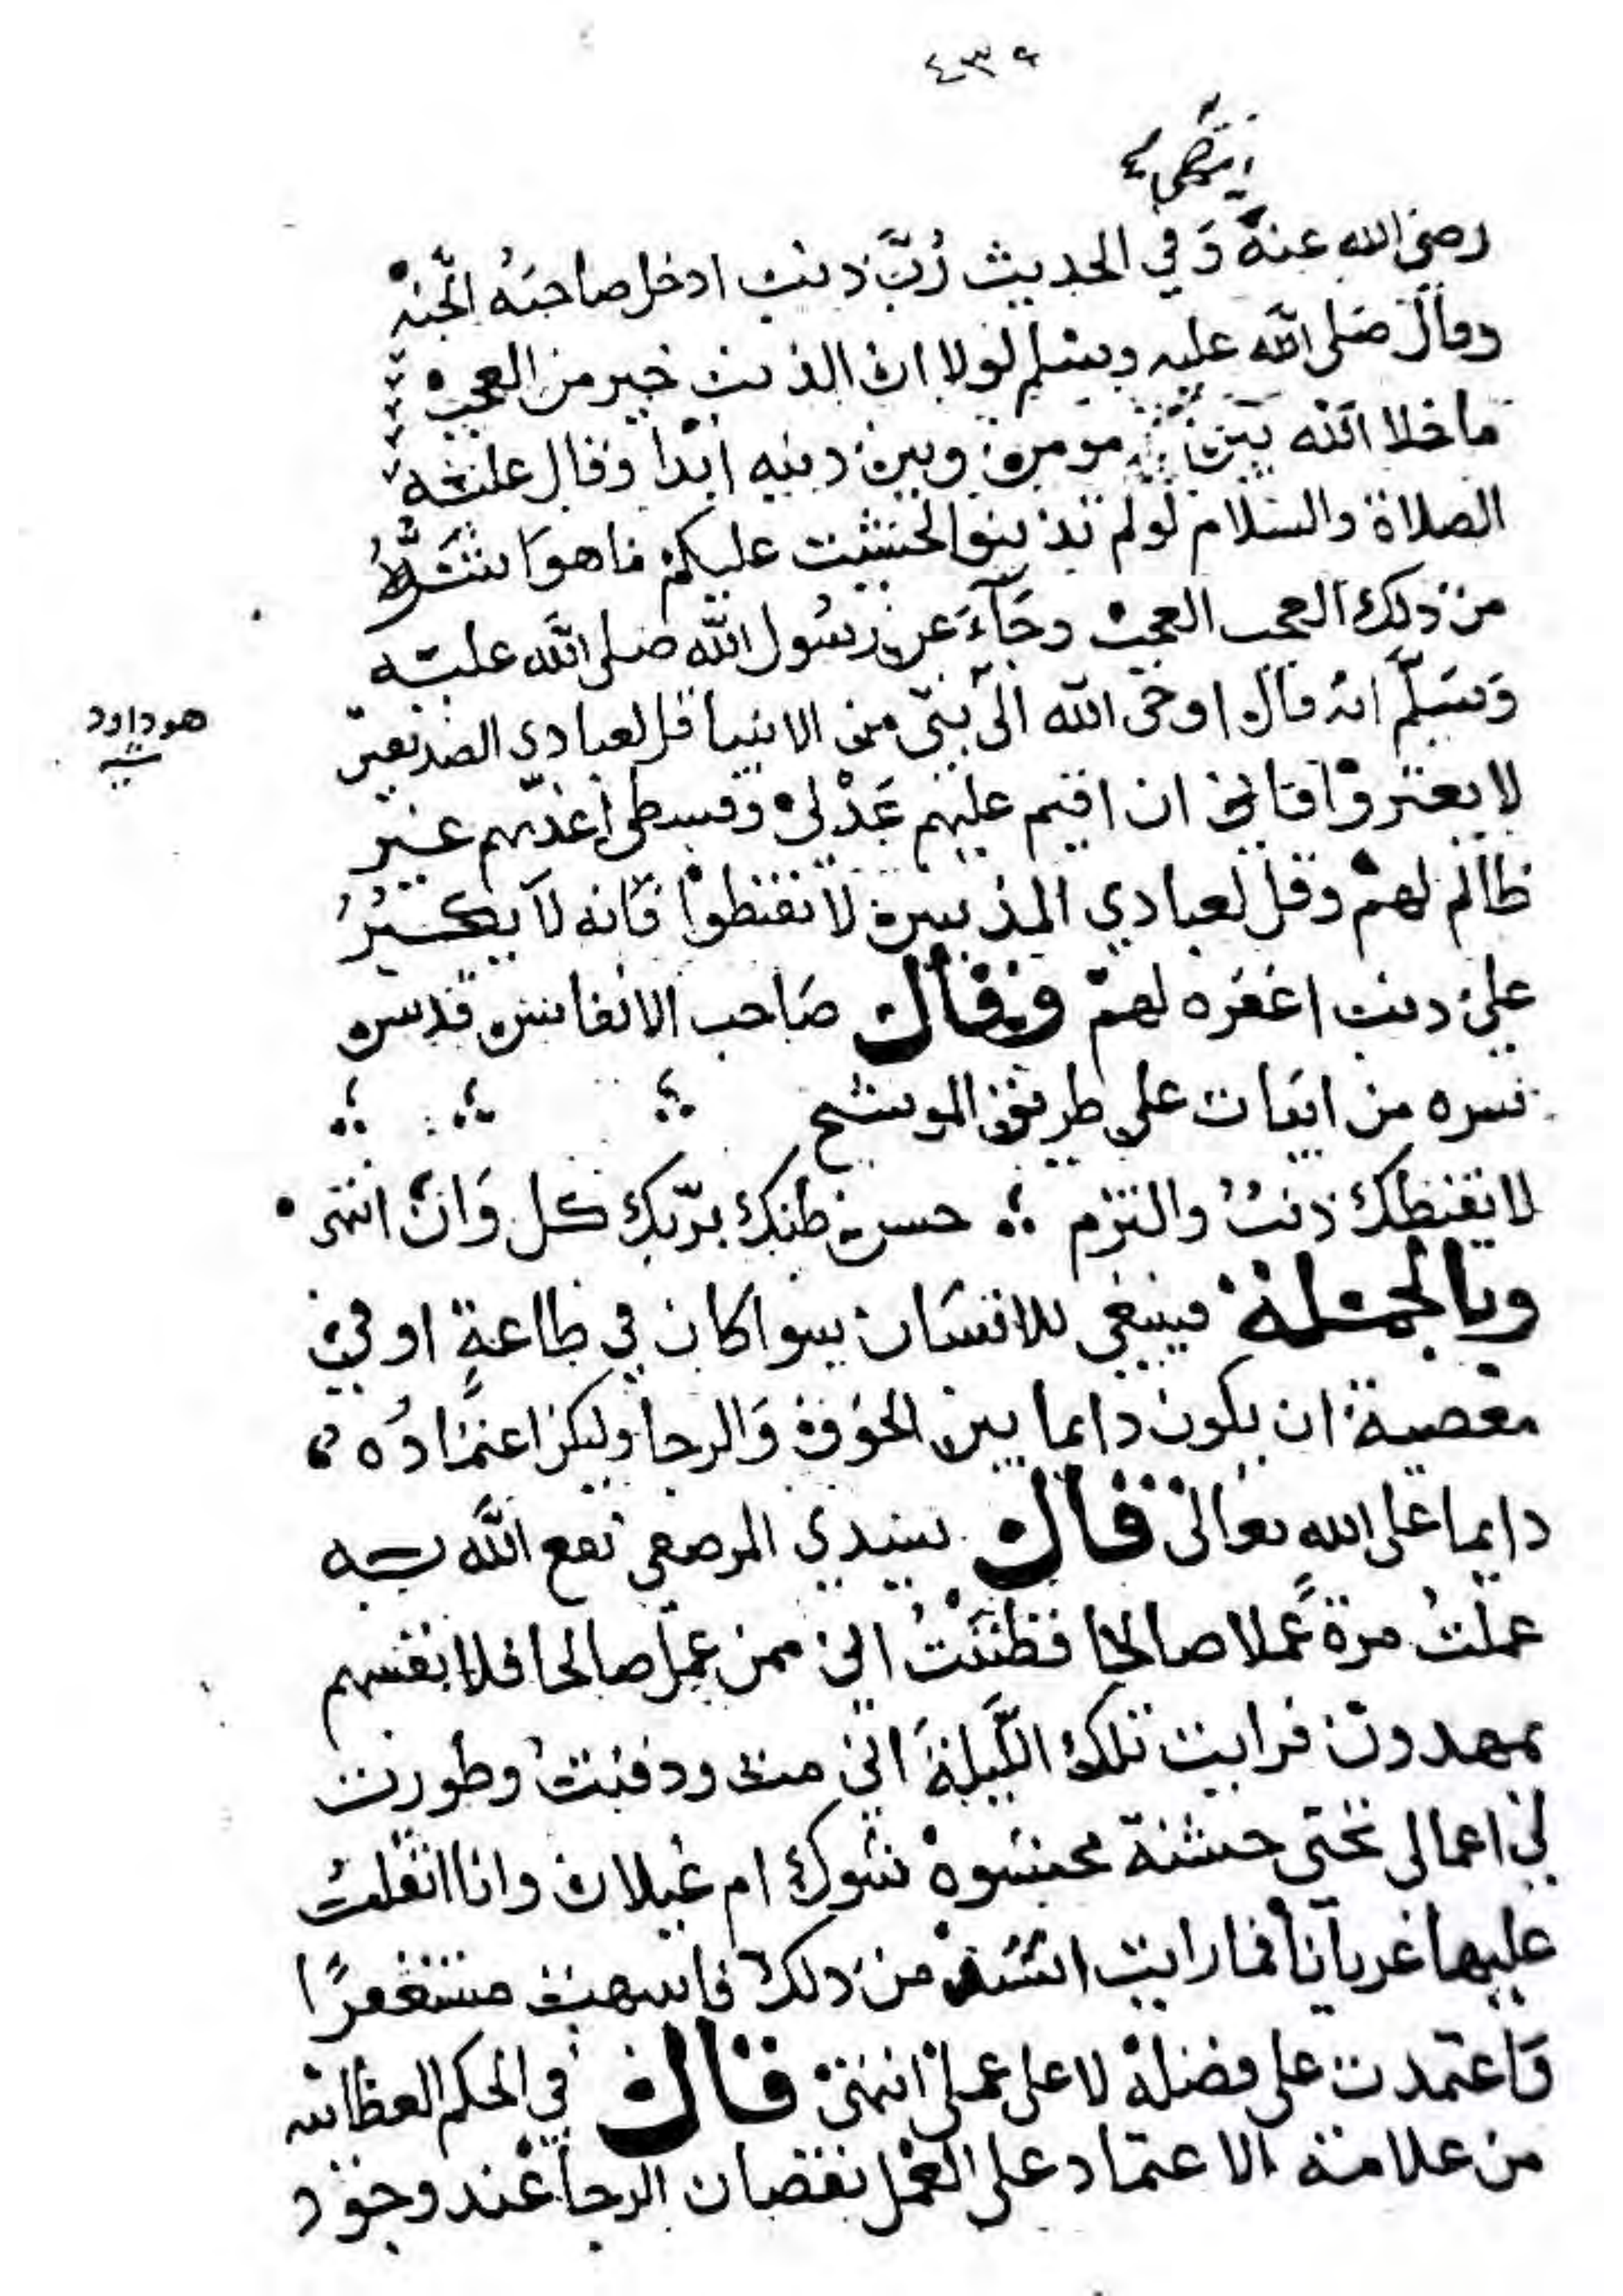 ٤٣٩
انتهى
رضي الله عنه وَفي الحديث رُبَّ ذنب ادخل صاحبَهُ الجنه
وقال صَلى الله عليه وسَلم لولا ان الذنب خير من العجب
ما خلا الله بَين مومن وبين ذنبه ابَدا وقال عليه
الصلاة والسَلام لو لم تذنبوا لخشيت عليكم ما هوَ اشَدُّ
من ذلك العجب العجب وجَآءَ عن رسُول الله صَلى الله عليه
وَسَلّم انه قال اوحى الله الى نبي من الانبيا قل لعبادي الصديقين
لا يغتروا فاني ان اقيم عليهم عَدْلي وقسطي اعذبهم غير
ظالم لهم وقل لعبادي المذنبين لا تقنطوا فانه لا يكبُرُ
على ذنب اغفره لهم وقال صَاحب الانفاس قدس
سره من ابيات على طريق الموشح
لا يقنطك ذنبُ والتزم حسن ظنك برَبّك كل وَان انتهى
وبالجملة فينبغي للانسَان سوا كان في طاعةٍ او في
معصية ان يكون دايما بين الخوف وَالرجا وليكن اعتمَادُه
دايما على الله تعَالى قال سيدي المرصفي نفع الله به
عملتُ مرة عَملا صالحا فظنَنْتُ اني ممن عمل صالحا فلانفسهم
يمهدون فرايت تلك اللَّيلةَ اني مت ودفنت وطورت
لي اعمالي تحتي خشنة محشوة شوك ام غيلان وانا اتقلبُ
عليها عريانا فما رايت اشد من ذلك فانتبهت مستغفرًا
وَاعتمدت على فضله لا على عملي انتهى قال في الحكم العطائيه
من علامة الاعتماد على العمل نقصان الرجا عند وجود
هو داود